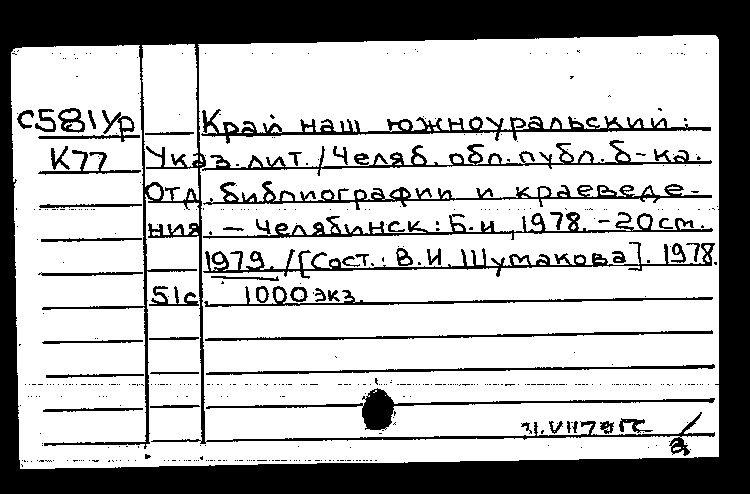 С581Ур Край наш южноуральский :
К77 Указ. лит. / Челяб. обл. публ. б-ка.
Отд. библиографии и краеведе-
ния. – Челябинск : Б.и., 1978. – 20 см.
1979. / [Сост. : В.И. Шумакова]. 1978.
51с. 1000 экз.